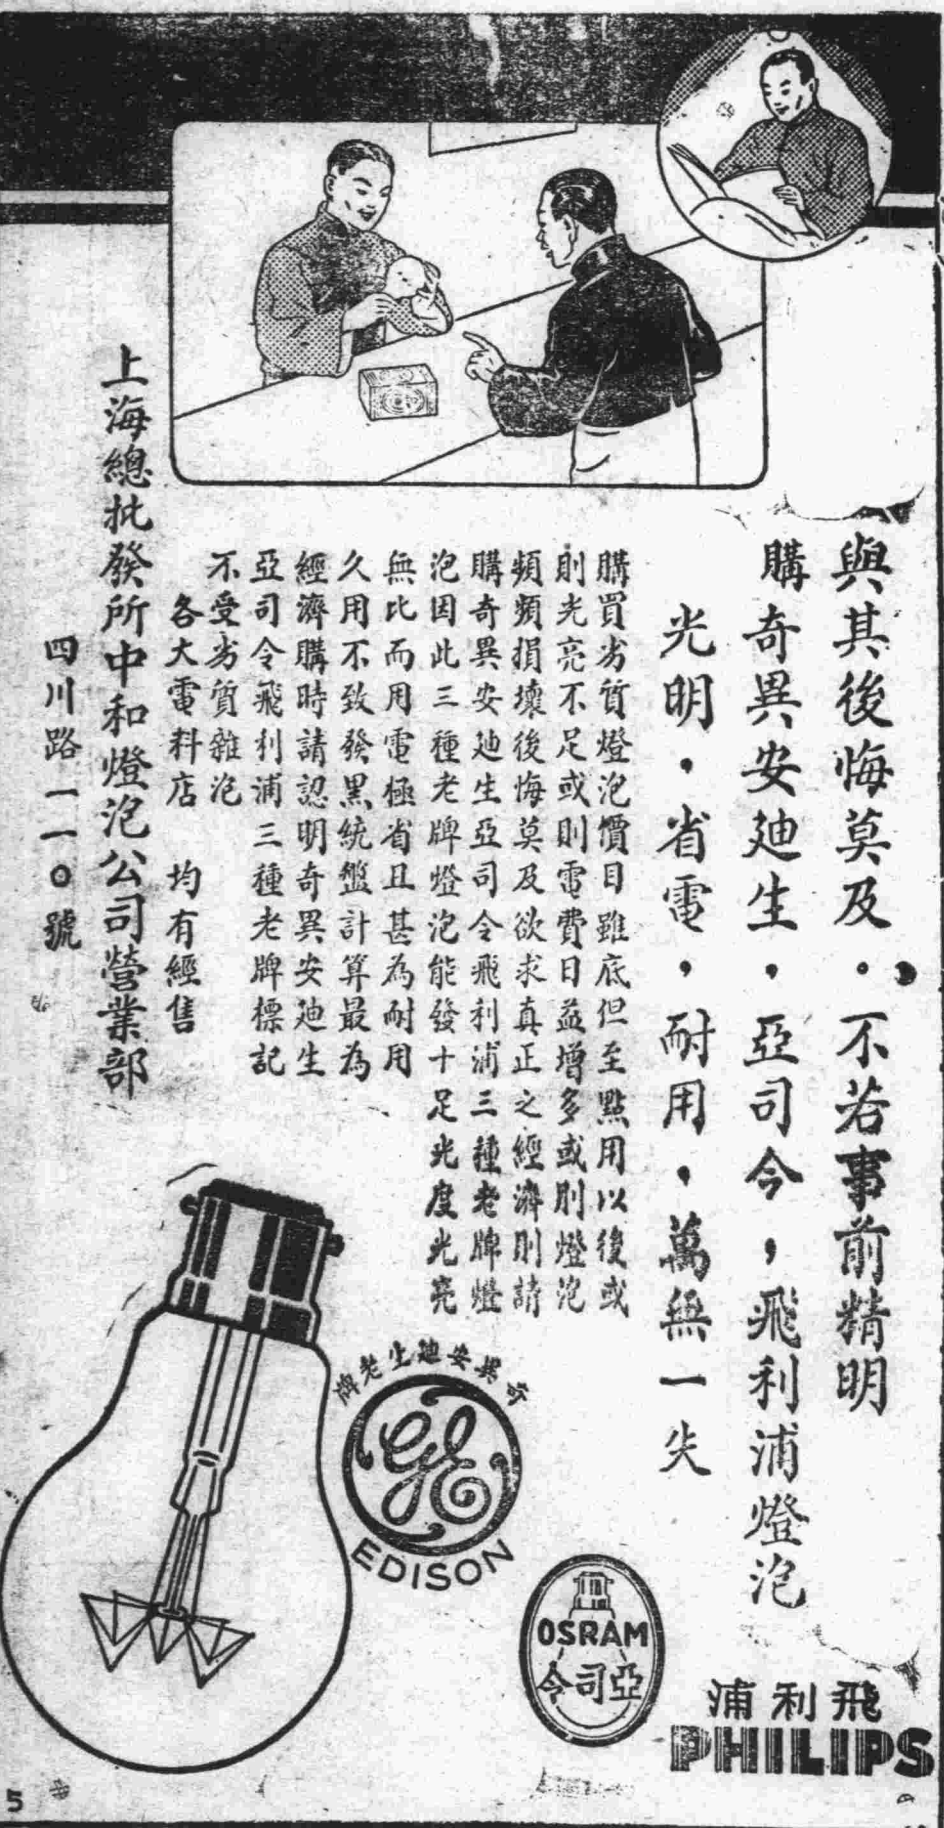 與其後悔莫及。不若事前精明
購奇異安廸生，亞司令，飛利浦燈泡
光明，省電，耐用，萬無一失
購買劣質燈泡價目雖底但至點用以後或
則光亮不足或則電費日益增多或則燈泡
頻頻損壞後悔莫及欲求真正之經濟則請
購奇異安廸生亞司令飛利浦三種老牌燈
泡因此三種老牌燈泡能發十足光度光亮
無比而用電極省且甚為耐用
久用不致發黑統盤計算最為
經濟購時請認明奇異安廸生
亞司令飛利浦三種老牌標記
不受劣質雜泡
各大電料店 均有經售
上海總批發所中和燈泡公司營業部
四川路一一〇號
奇異安廸生老牌
GE
EDISON
OSRAM
亞司令
飛利浦
PHILIPS
5